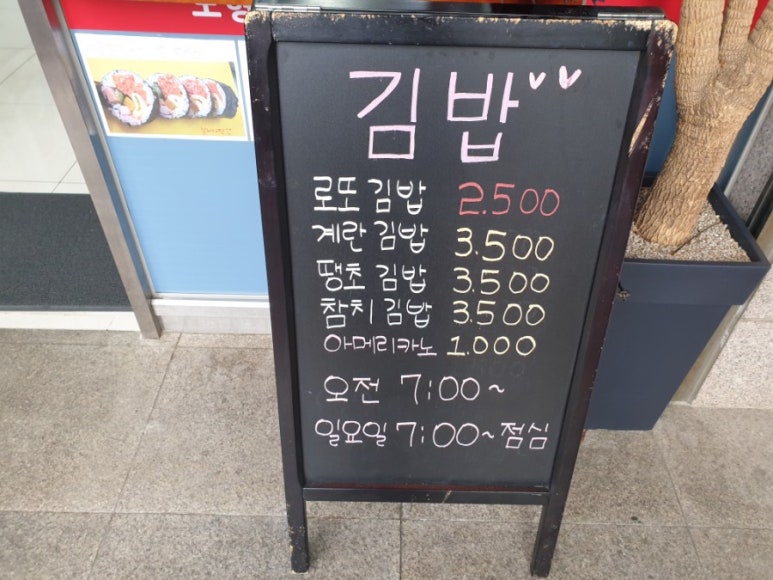 김밥
로또김밥 2.500
계란김밥 3.500
땡초 김밥 3.500
참치김밥 3.500
아메리카노 1.000
오전 7:00~
일요일 7:00~점심